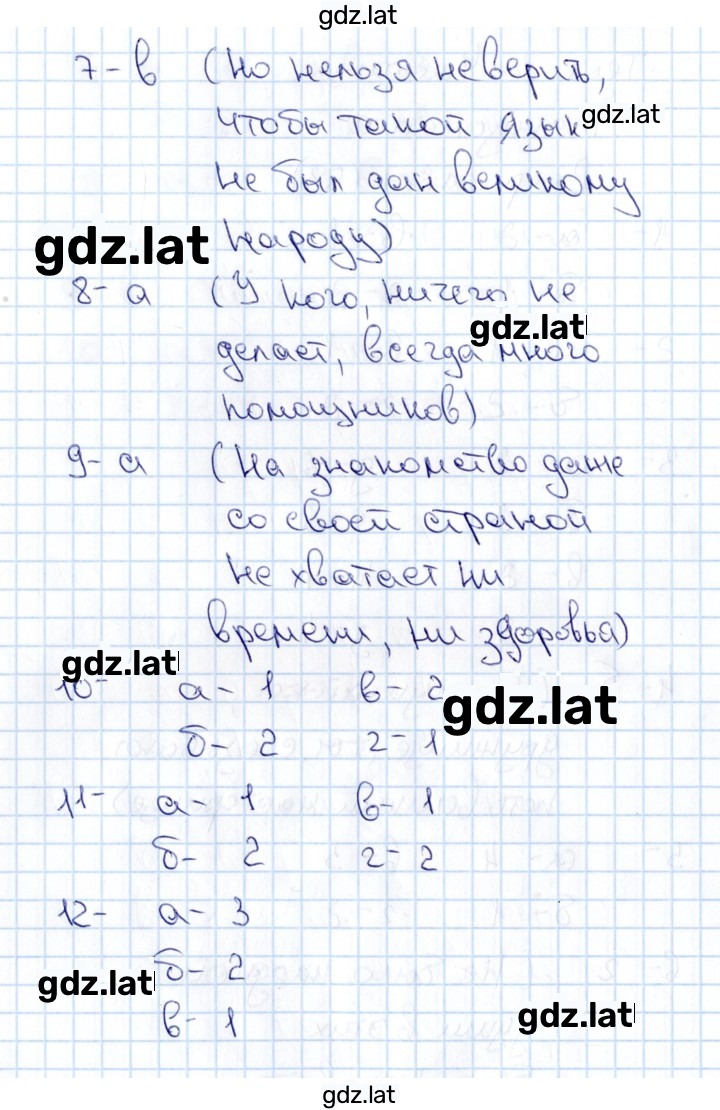 gdz.lat
7-в (Но нельзя не верить,
чтобы такой язык
gdz.lat
не был дан великому
gdz.lat
народу)
8- а (У кого, ничего не
gdz.lat
делает, всегда много
помощников)
9- а (На знакомство даже
со своей страной
не хватает ни
времени, ни здоровья)
gdz.lat
10- а- 1 в- 2
gdz.lat
б- 2 г- 1
11- а- 1 в- 1
б- 2 г- 2
12- а- 3
б- 2
gdz.lat
в- 1
gdz.lat
gdz.lat